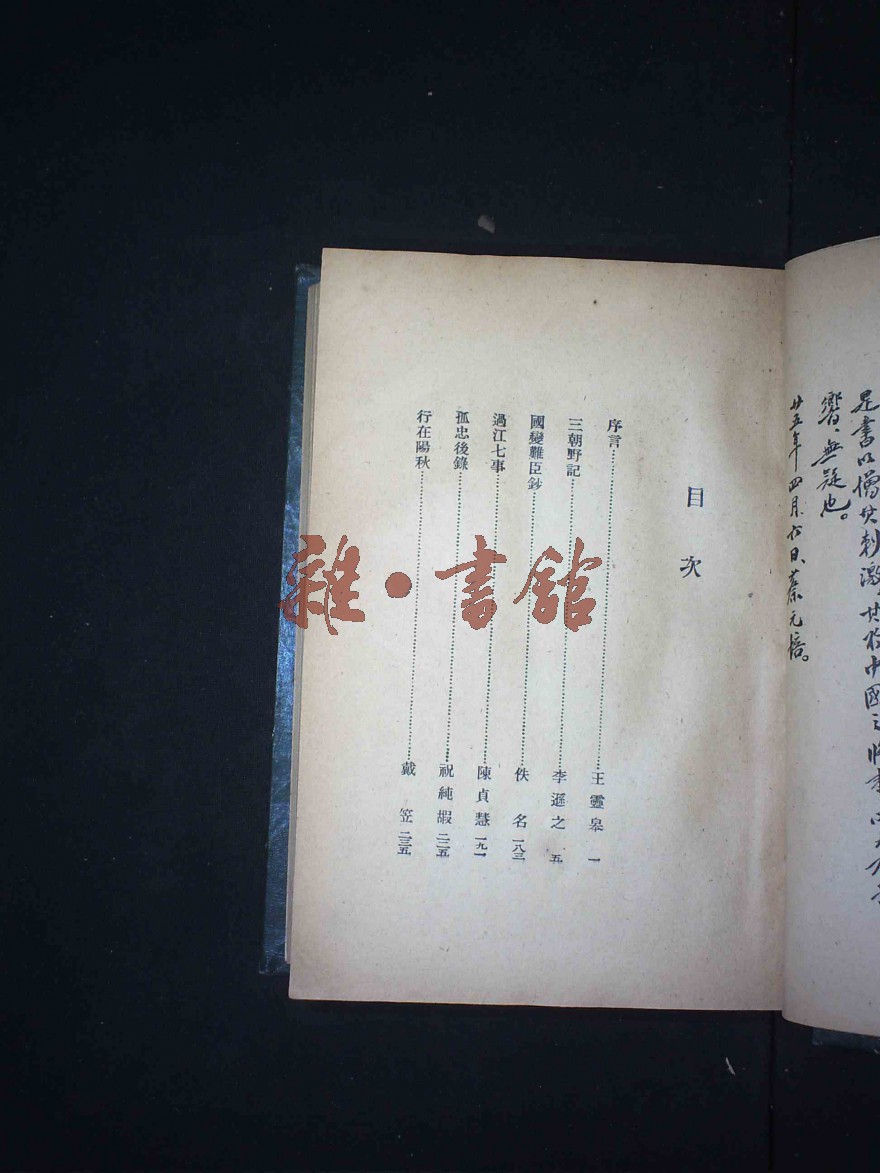 是書以增其刺激
響，無疑也。
廿五年四月六日、蔡元培。
目次
序言 王靈皋 一
三朝野記 李遜之 五
國變難臣鈔 佚名 一八三
過江七事 陳貞慧 一九一
孤忠後錄 祝純嘏 二二五
行在陽秋 戴笠 二三五
雜·書館